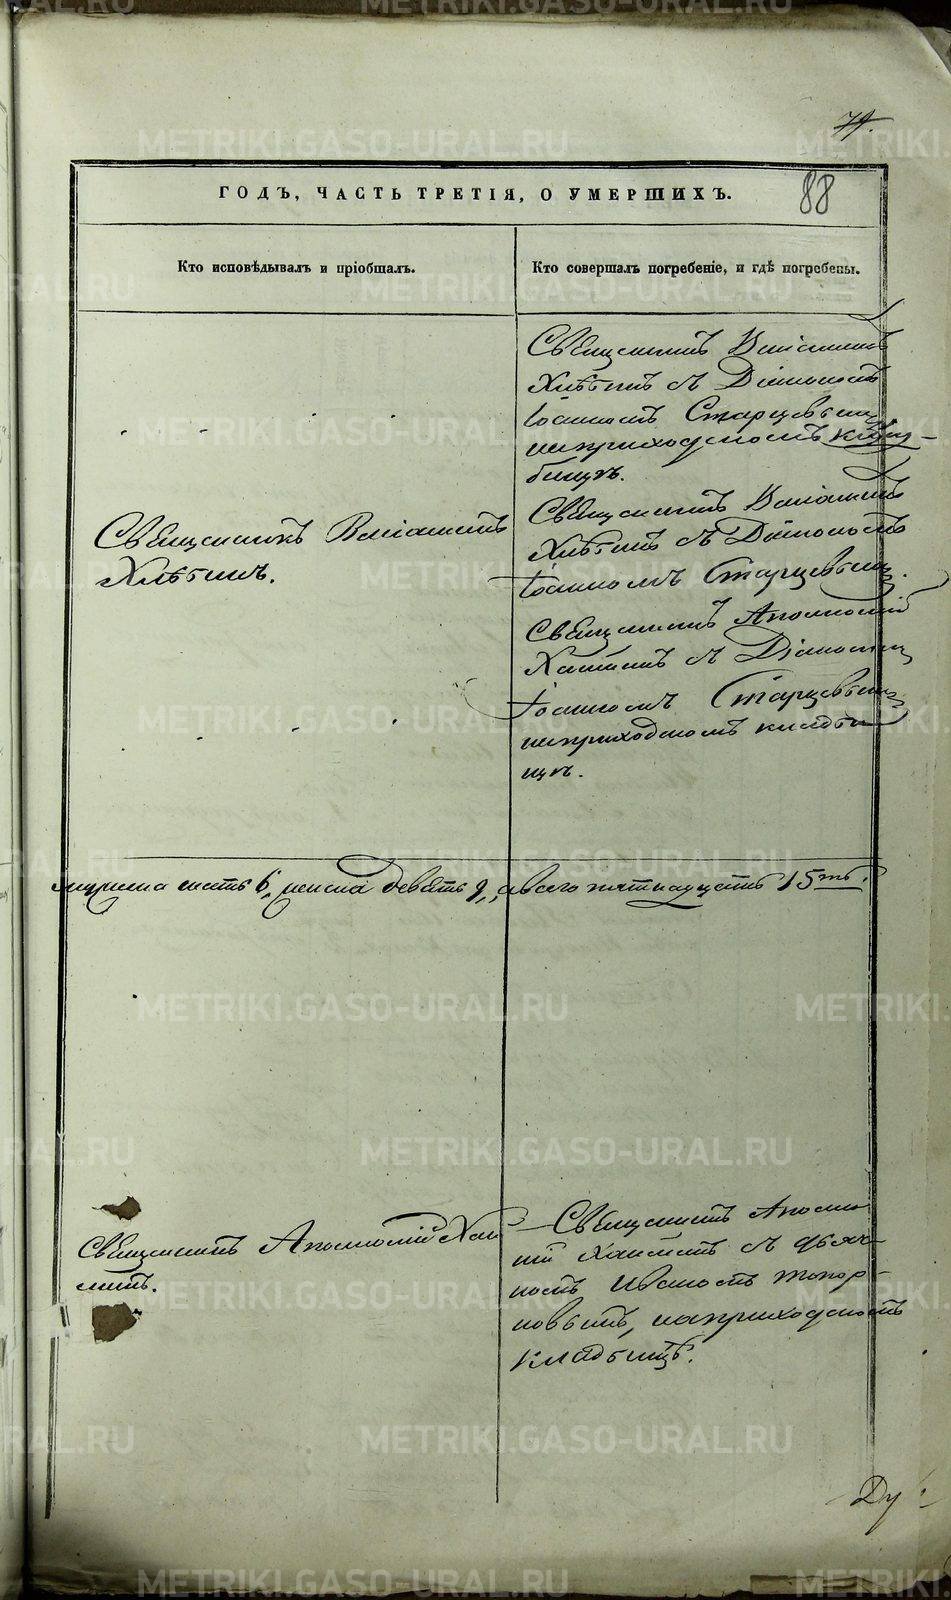 79.
88
ГОДЪ, ЧАСТЬ ТРЕТІЯ, О УМЕРШИХЪ.
Кто исповѣдывалъ и пріобщалъ.
Кто совершалъ погребеніе, и гдѣ погребены.
Священникъ Веніаминъ
Хлѣбинъ съ Діакономъ
Іоанномъ Старцевымъ
на приходскомъ клад-
бищѣ.
Священникъ Веніаминъ
Хлѣбинъ.
Священникъ Веніаминъ
Хлѣбинъ съ Діакономъ
Іоанномъ Старцевымъ.
Священникъ Аполлоній
съ Діакономъ
Іоанномъ Старцевымъ
на приходскомъ кладби
щѣ.
мужеска шесть 6, женска девять 9, а всего пятнадцать 15ть.
Священникъ Аполлоній
Священникъ Аполло
ній съ дьяч-
комъ Иваномъ Топор-
ковымъ, на приходскомъ
кладбищѣ.
Ду
METRIKI.GASO-URAL.RU